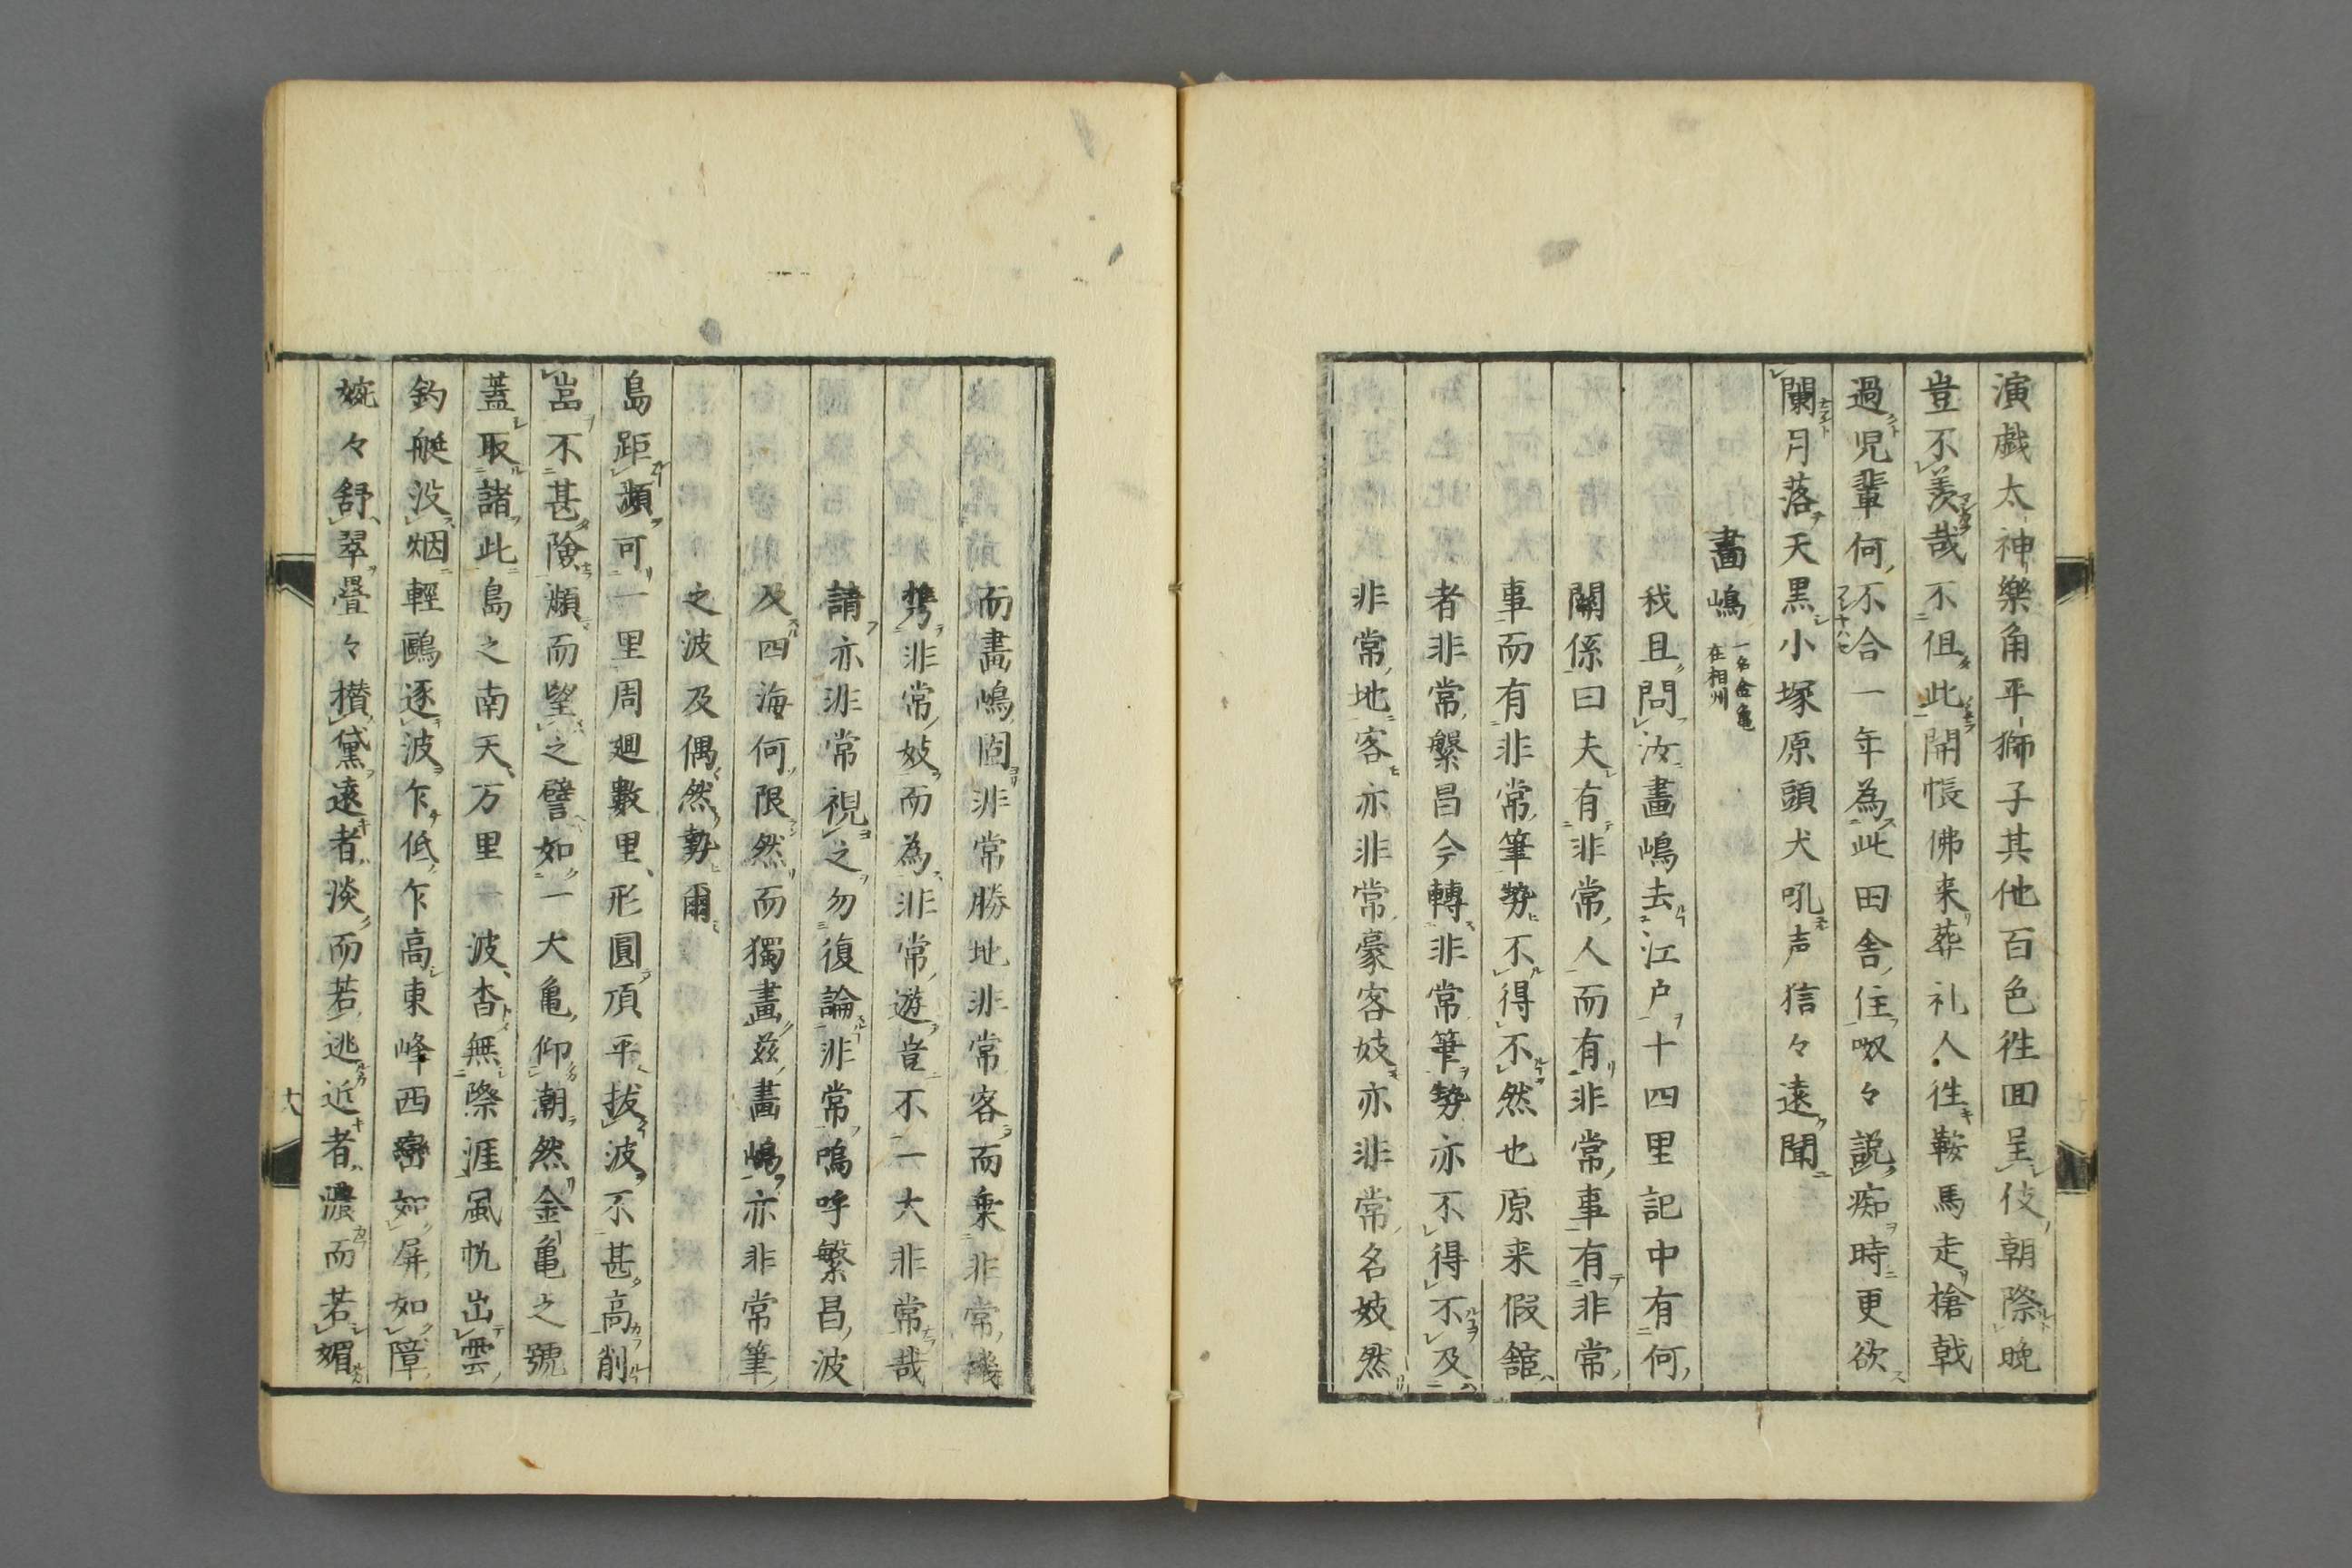 演戯太神樂角平獅子其他百色徃回呈伎朝際晩
豈不羨哉不但此開帳佛来葬礼人徃鞍馬走槍戟
過児輩何不合一年為此田舎住呶々説痴時更欲
闌月落天黒小塚原頭犬吼声狺々遠聞
畫嶋 一名金亀
在相州
我且問汝畫嶋去江戸十四里記中有何
關係曰夫有非常人而有非常事有非常
事而有非常筆勢不得不然也原来假舘
者非常繁昌今轉非常筆勢亦不得不及
非常地客亦非常豪客妓亦非常名妓然
而畫嶋固非常勝地非常客而乗非常機
携非常妓而為非常遊豈不一大非常哉
請亦非常視之勿復論非常嗚呼繁昌波
及四海何限然而獨畫茲畫嶋亦非常筆
之波及偶然勢爾
島距瀕可一里周廻數里形圓頂平抜波不甚高削
嵓不甚險瀕而望之譬如一大亀仰潮然金亀之號
蓋取諸此島之南天万里一波杳無際涯風帆出雲
釣艇没烟輕鷗逐波乍低乍高東峰西巒如屏如障
婉々舒翠疊々攅黛遠者淡而若逃近者濃而若媚
十八